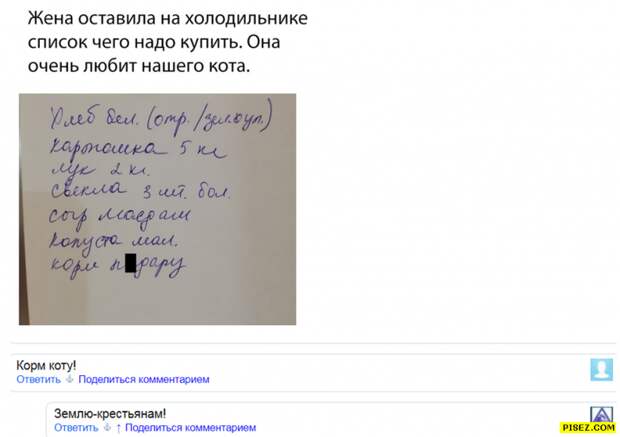 Жена оставила на холодильнике
список чего надо купить. Она
очень любит нашего кота.
Хлеб бел. (отр./
Картошка 5 кг
лук 2 кг.
Свекла 3 шт. бол.
сыр Маасдам
Капуста мал.
корм п дару
Корм коту!
Ответить Поделиться комментарием
Землю-крестьянам!
Ответить ↑ Поделиться комментарием
PISEZ.COM